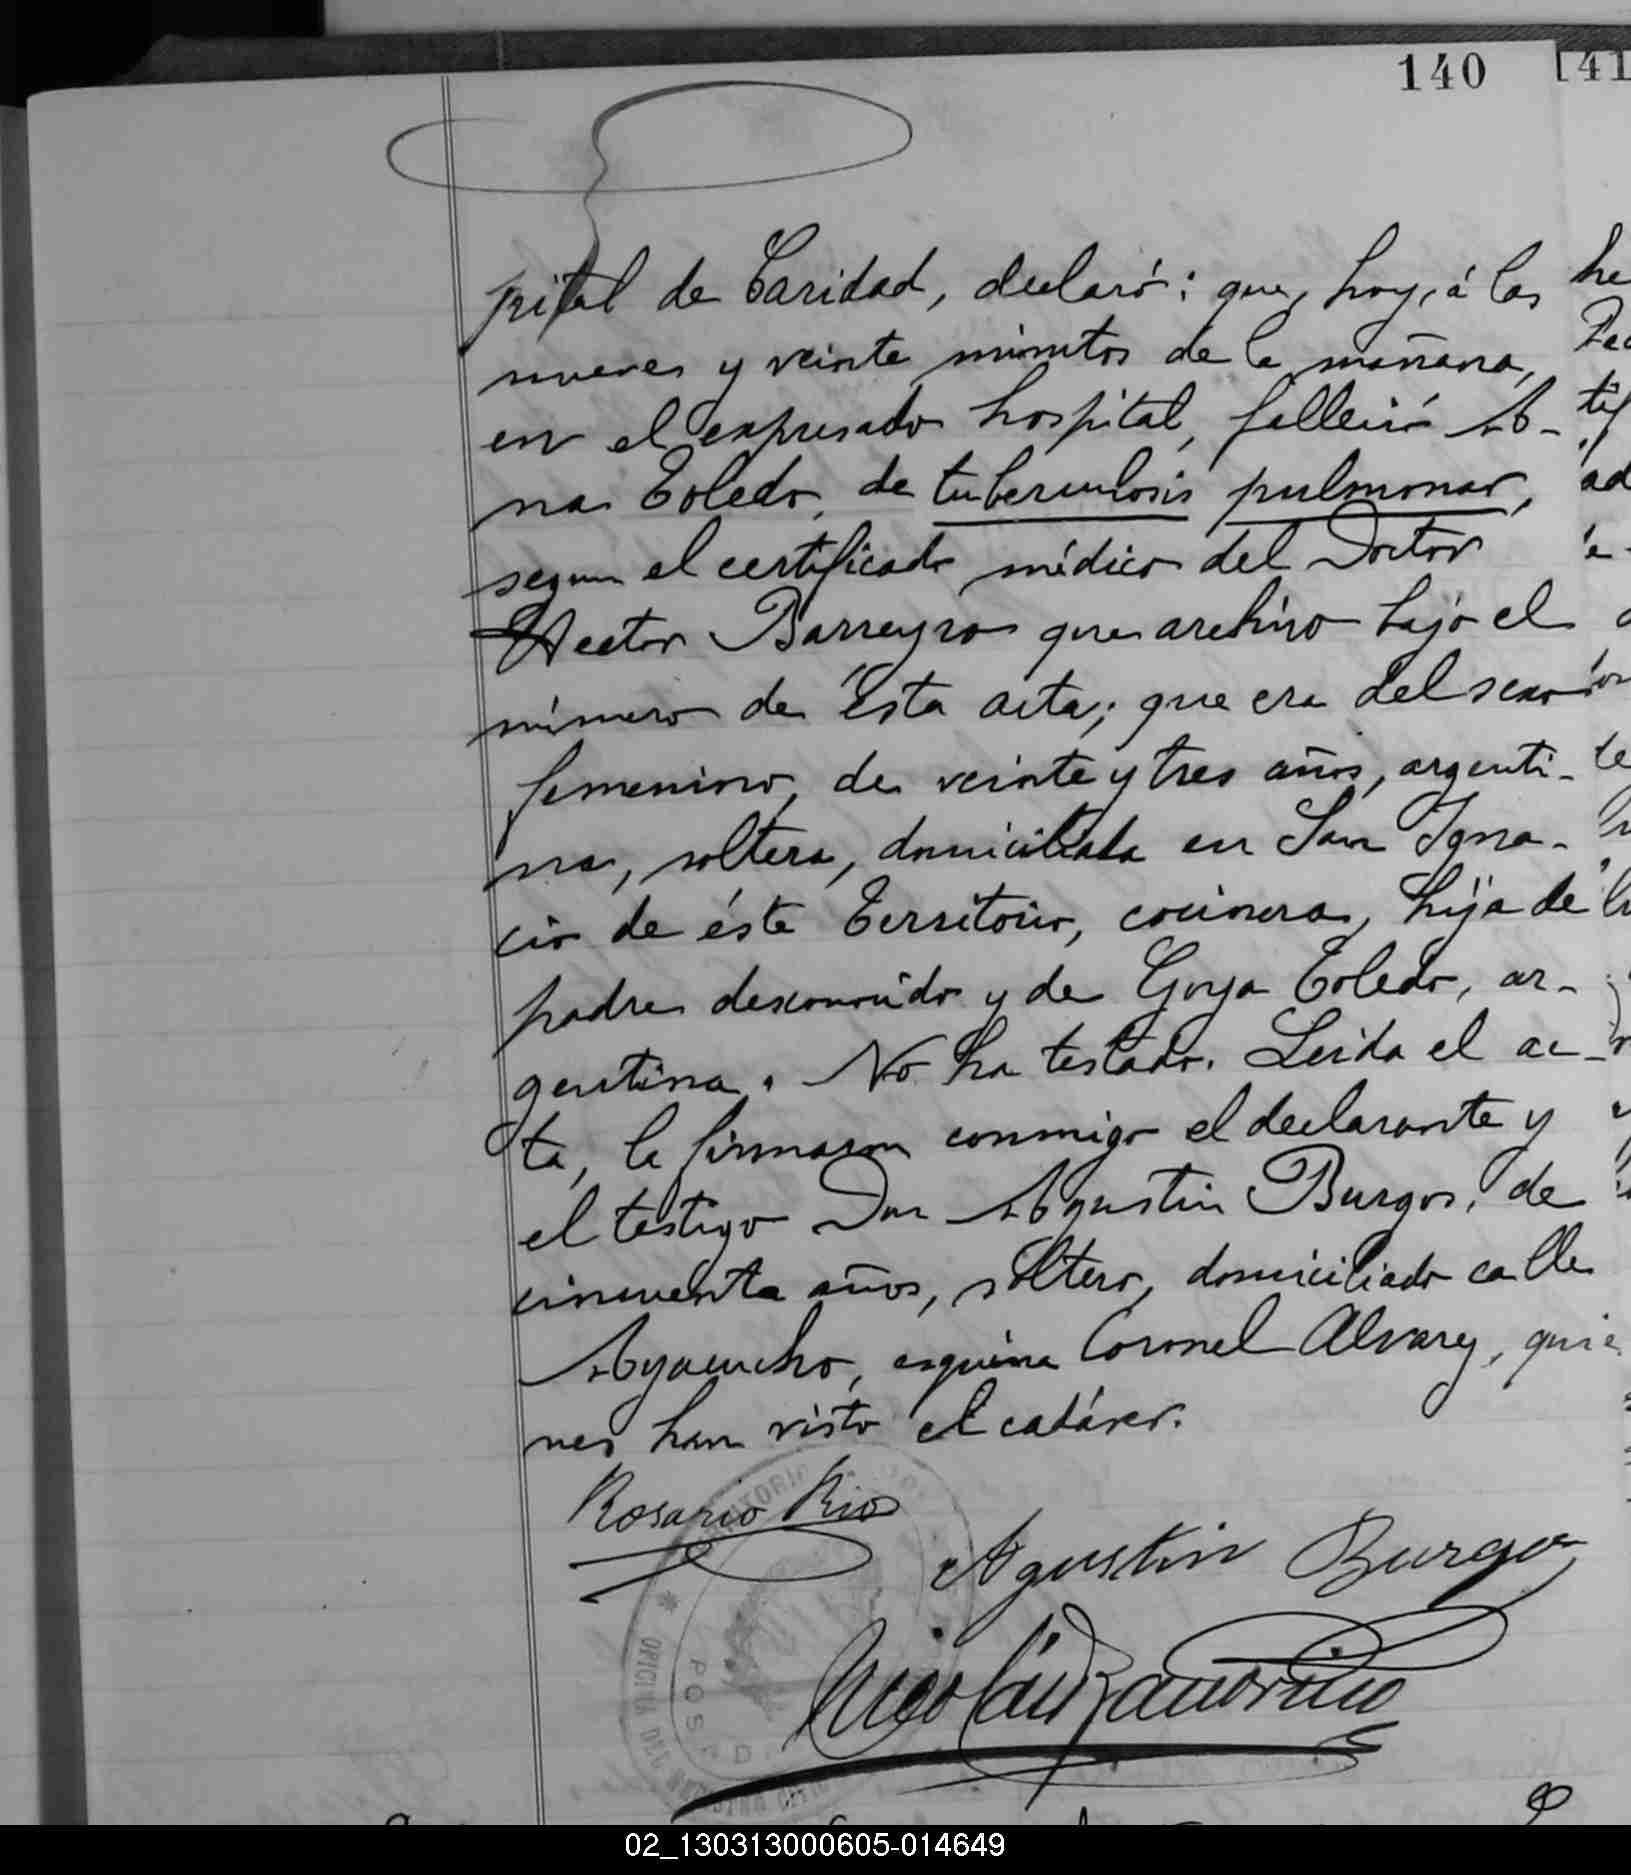 140 141
pital de Caridad, declaró: que, hoy, á las
nueve y veinte minutos de la mañana,
en el expresado hospital, falleció A-
na Toledo, de tuberculosis pulmonar,
segun el certificado médico del Doctor
Hector Barreyro que archivo bajo el
número de ésta acta; que era del sexo
femenino, de veinte y tres años, argenti-
na, soltera, domiciliada en San Igna-
cio de éste Territorio, cocinera, hija de
padre desconocido y de Goya Toledo, ar-
gentina. No ha testado. Leida el ac-
ta, la firmaron conmigo el declarante y
el testigo Don Agustin Burgos, de
cincuenta años, soltero, domiciliado calle
Ayacucho, esquina Coronel Alvarez, quie
nes han visto el cadáver.
Rosario Rios
Agustin Burgos
OFICINA DEL REGISTRO CIVIL
02_130313000605-014649